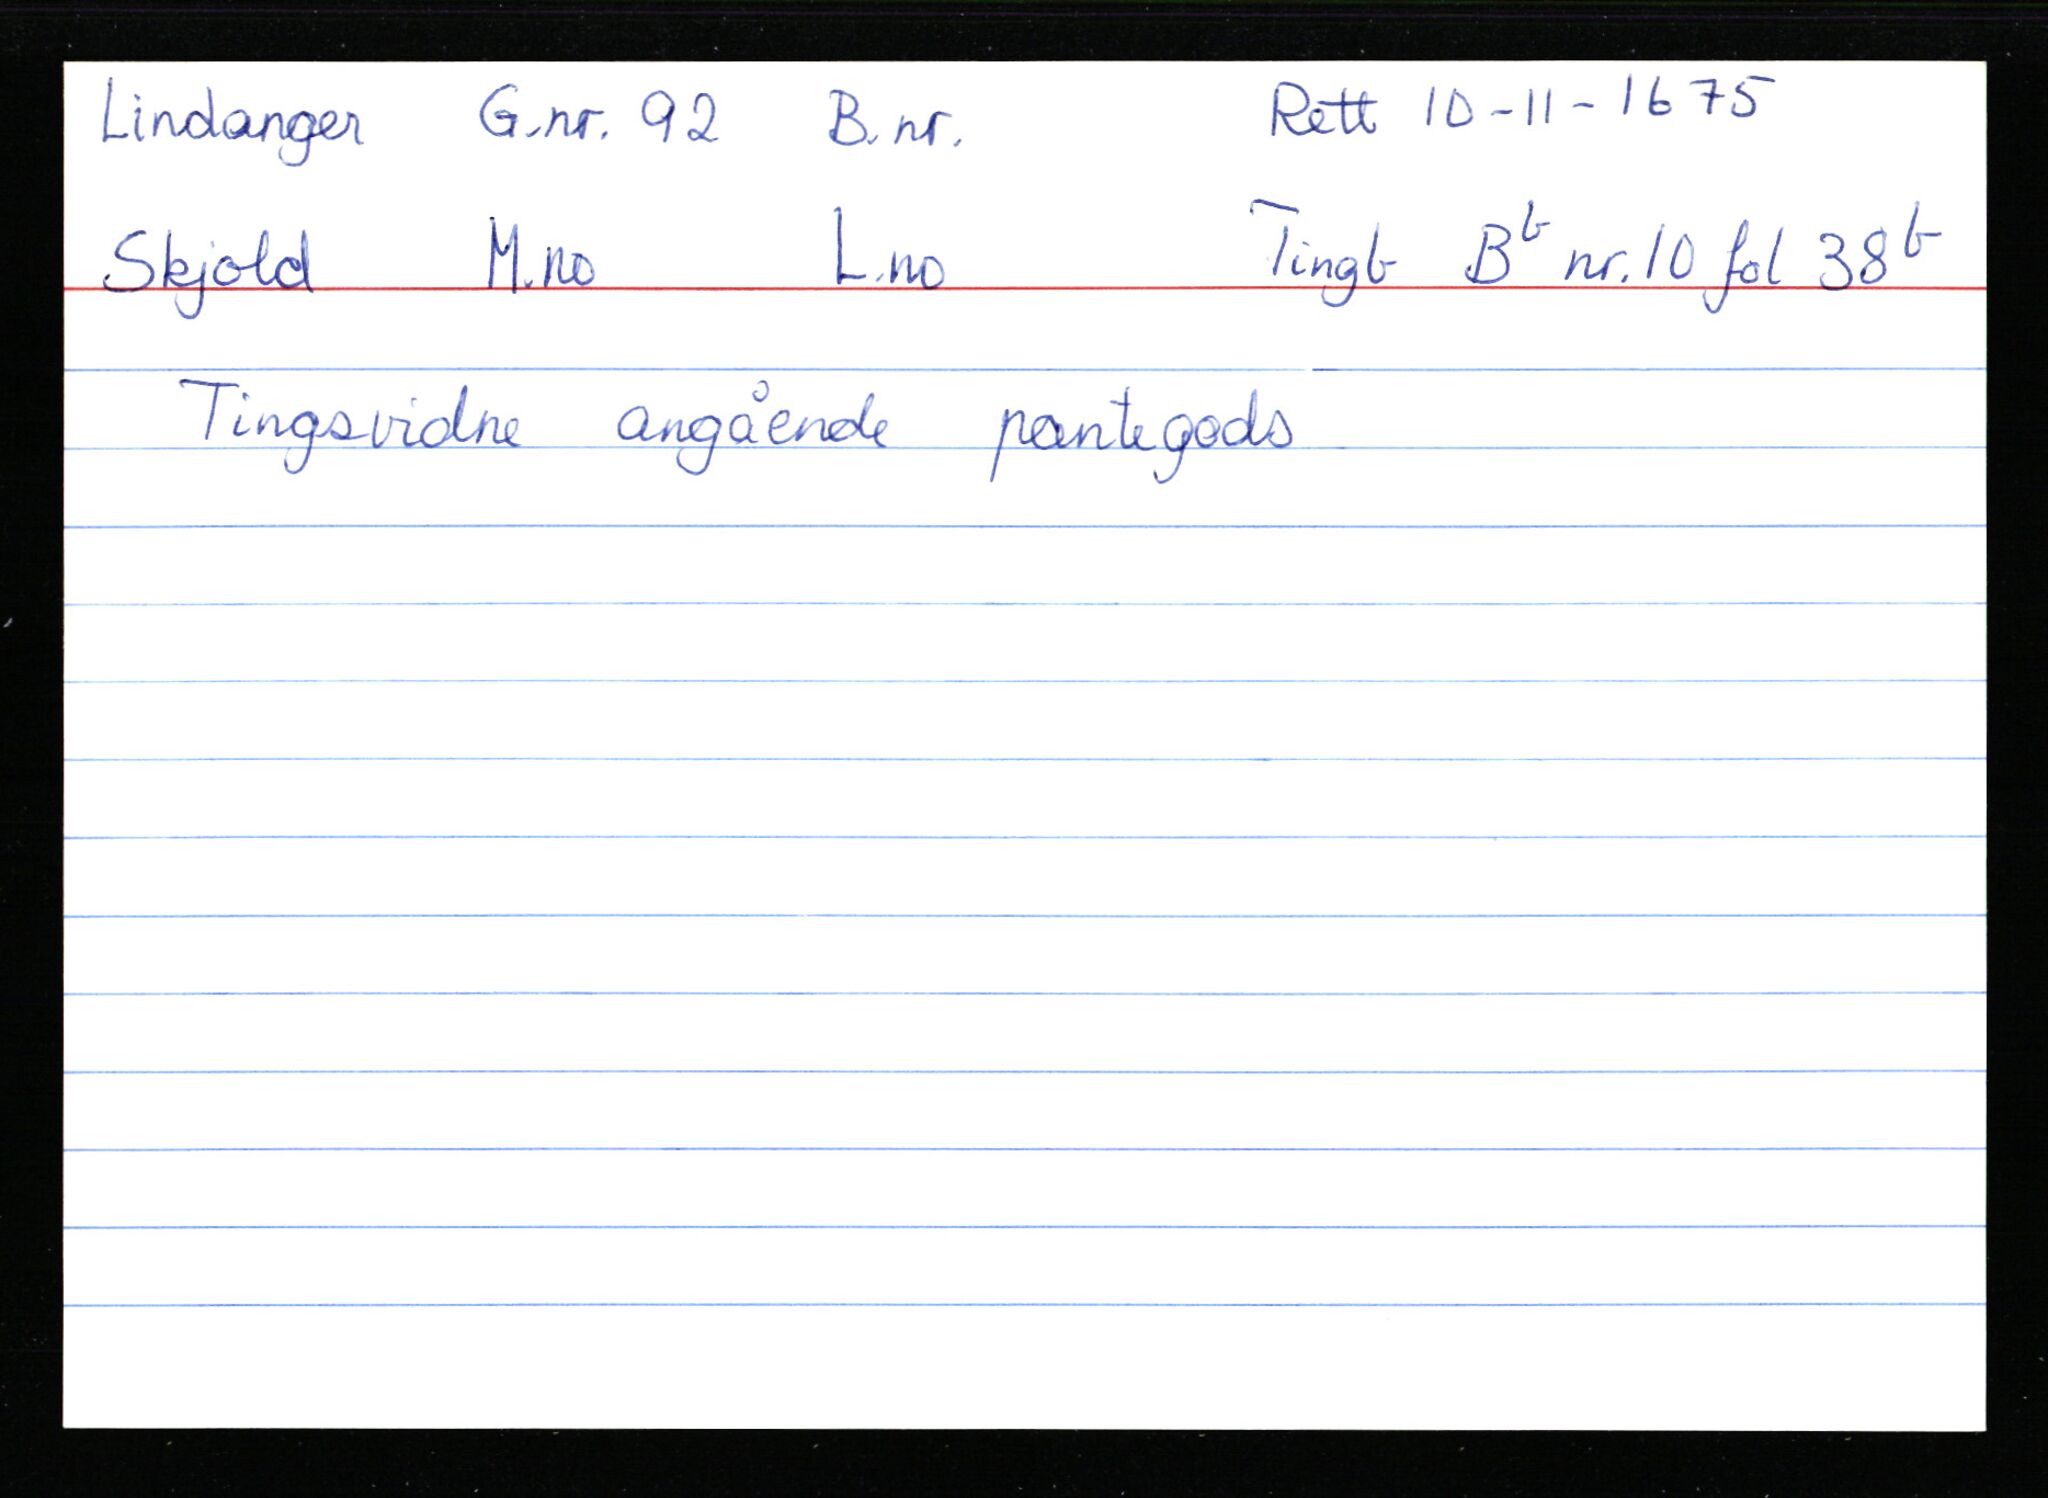 Lindanger G.nr. 92 B.nr. Rett 10-11-1675
Skjold M.no L.no Tingb Bᵇ nr. 10 fol 38ᵇ
Tingsvidne angående pantegods